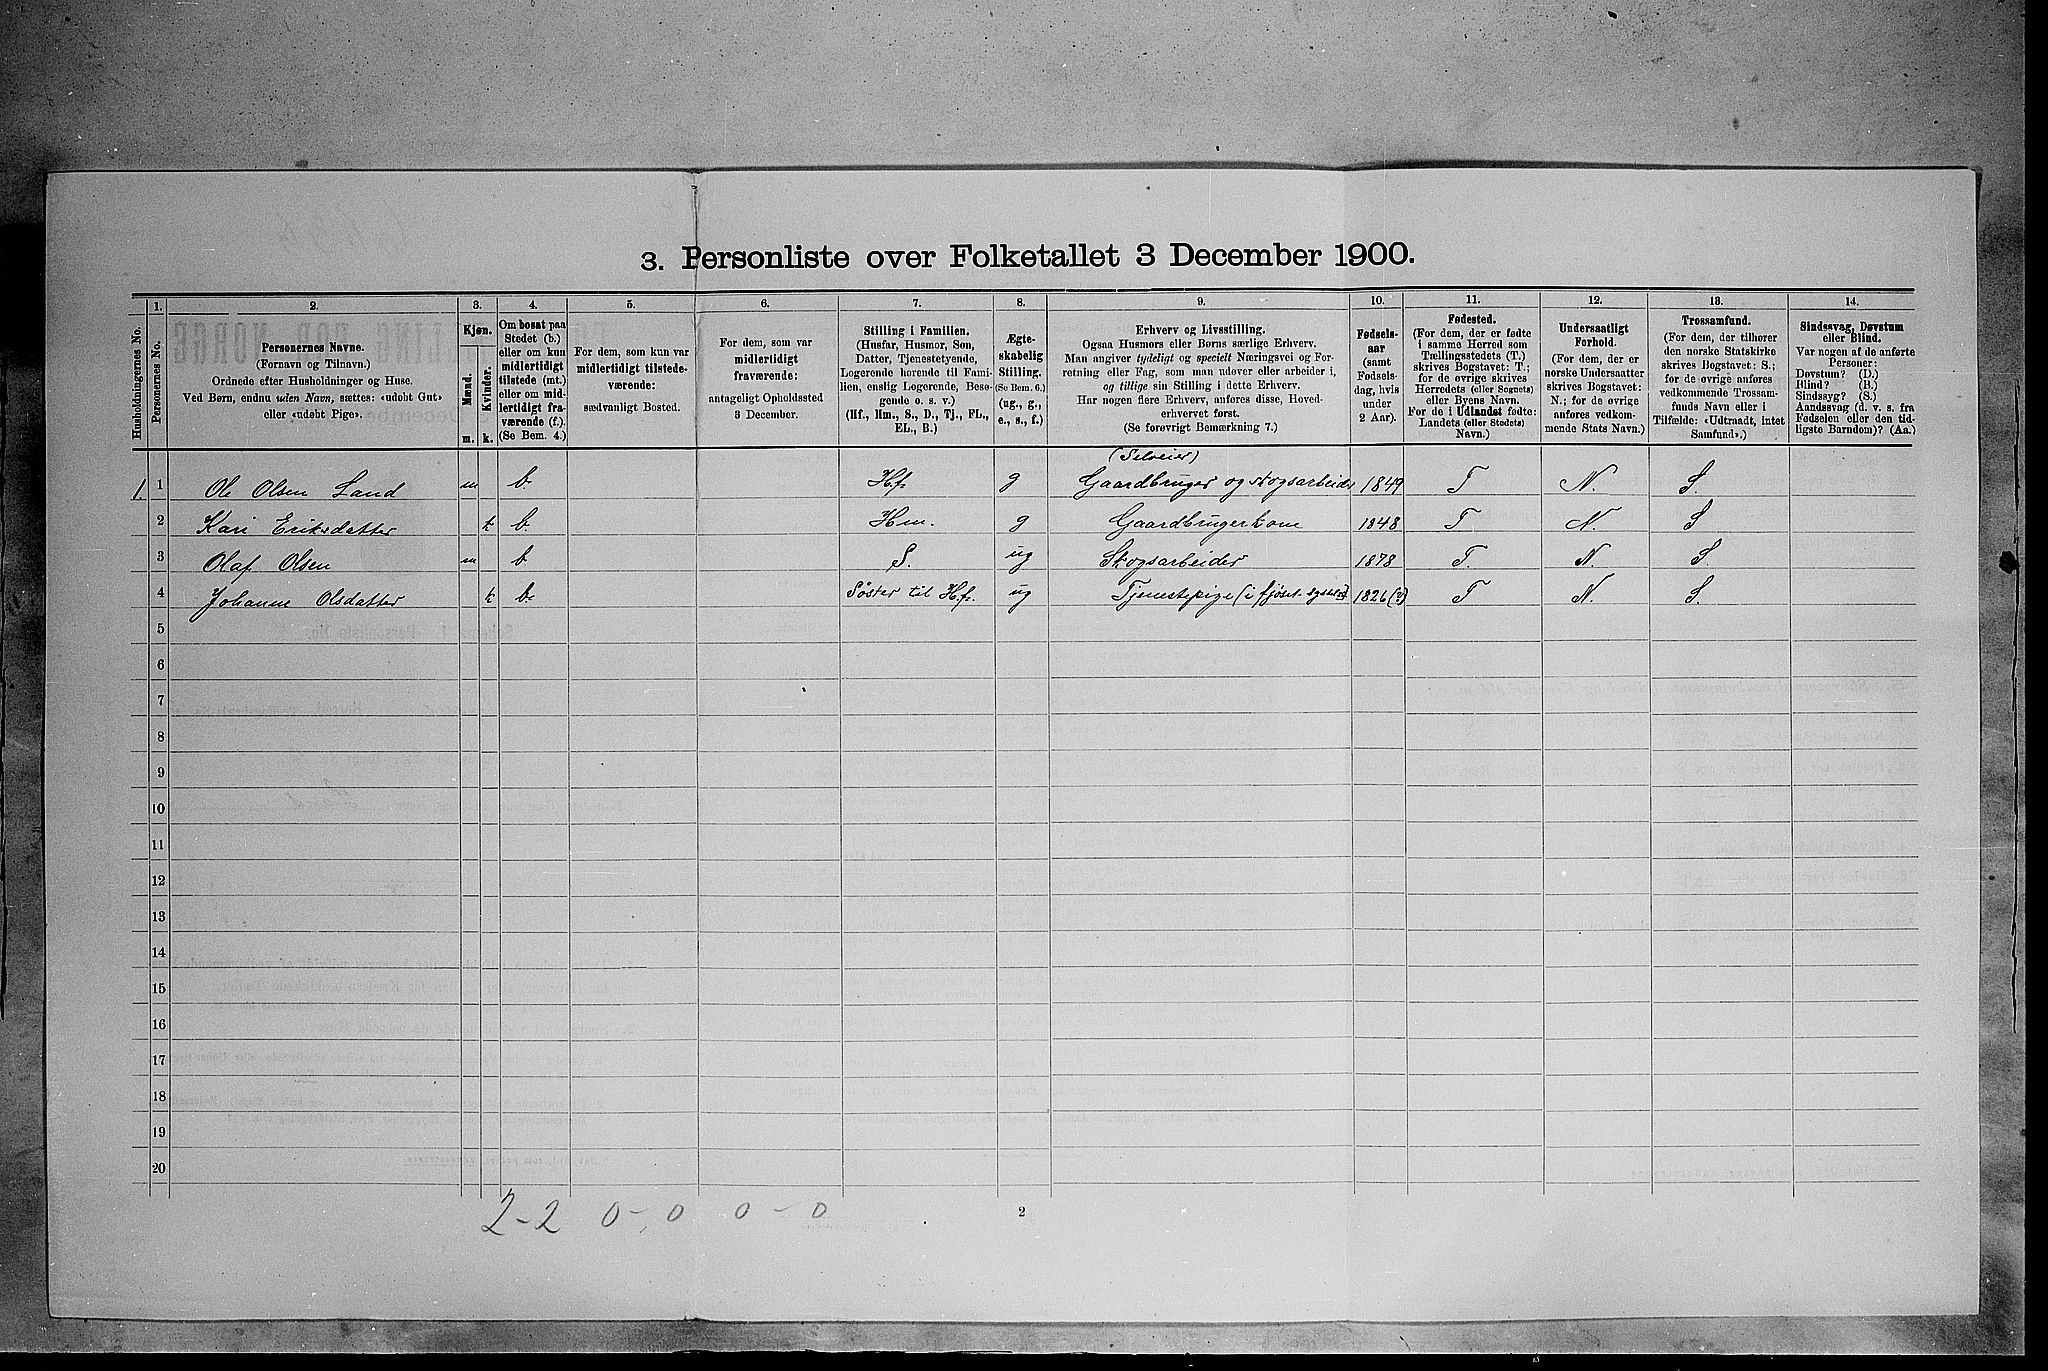 3. Personliste over Folketallet 3 December 1900.
Husholdningernes No.
1.
Personernes No.
2.
Personernes Navne.
(Fornavn og Tilnavn.)
Ordnede efter Husholdninger og Huse.
Ved Børn, endnu uden Navn, sættes: «udøbt Gut»
eller «udøbt Pige».
3.
Kjøn.
Mænd.
Kvinder.
m.
k.
4.
Om bosat paa
Stedet (b.)
eller om kun
midlertidigt
tilstede (mt.)
eller om mid-
lertidigt fra-
værende (f.).
(Se Bem. 4.)
5.
For dem, som kun var
midlertidigt tilstede-
værende:
sædvanligt Bosted.
6.
For dem, som var
midlertidigt
fraværende:
antageligt Opholdssted
3 December.
7.
Stilling i Familien.
(Husfar, Husmor, Søn,
Datter, Tjenestetyende,
Logerende hørende til Fami-
lien, enslig Logerende, Besø-
gende o. s. v.)
(Hf., Hm., S., D., Tj., FL.,
EL., B.)
8.
Ægte-
skabelig
Stilling.
(Se Bem. 6.)
(ug., g.,
e., s., f.)
9.
Erhverv og Livsstilling.
Ogsaa Husmors eller Børns særlige Erhverv.
Man angiver tydeligt og specielt Næringsvei og For-
retning eller Fag, som man udøver eller arbeider i,
og tillige sin Stilling i dette Erhverv.
Har nogen flere Erhverv, anføres disse, Hoved-
erhvervet først.
(Se forøvrigt Bemærkning 7.)
10.
Fødsels-
aar
(samt
Fødsels-
dag, hvis
under
2 Aar).
11.
Fødested.
(For dem, der er fødte
i samme Herred som
Tællingsstedets (T.)
skrives Bogstavet: T.;
for de øvrige skrives
Herredets (eller Sognets)
eller Byens Navn.
For de i Udlandet fødte:
Landets (eller Stedets)
Navn.)
12.
Undersaatligt
Forhold.
(For dem, der er
norske Undersaatter
skrives Bogstavet:
N.; for de øvrige
anføres vedkom-
mende Stats Navn.)
13.
Trossamfund.
(For dem, der tilhører
den norske Statskirke
skrives Bogstavet: S.;
for de øvrige anføres
vedkommende Trossam-
funds Navn eller i
Tilfælde: «Udtraadt, intet
Samfund».)
14.
Sindssvag, Døvstum
eller Blind.
Var nogen af de anførte
Personer:
Døvstum? (D.)
Blind? (B.)
Sindssyg? (S.)
Aandssvag (d. v. s. fra
Fødselen eller den tid-
ligste Barndom)? (Aa.)
(Selveier)
1. 1 Ole Olsen Sand m b. Hf. g Gaardbruger og skogsarbeider 1849 T N. S.
2 Kari Eriksdatter k b. Hm. g Gaardbrugerkone 1848 T N. S
3 Olaf Olsen m b S. ug Skogsarbeider 1878 T. N. S.
4 Johanne Olsdatter k b. Søster til Hf. ug Tjenestepige (i fjøset 1826 (?) T N. S.
5
6
7
8
9
10
11
12
13
14
15
16
17
18
19
20
2-2 0-0 0-0
2